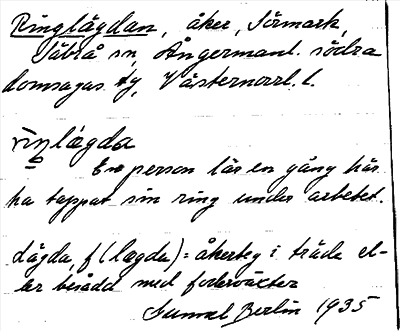 Ringlägdan, åker, Sörmark,
Säbrå sn, Ångermanl. södra
domsagas tg, Västernorrl. l.
rìŋlægda
En person lär en gång här
ha tappat sin ring under arbetet.
Lägda, f (lægda) = åkerteg i träda el-
ler besådd med foderväxter
Gunnel Berlin 1935